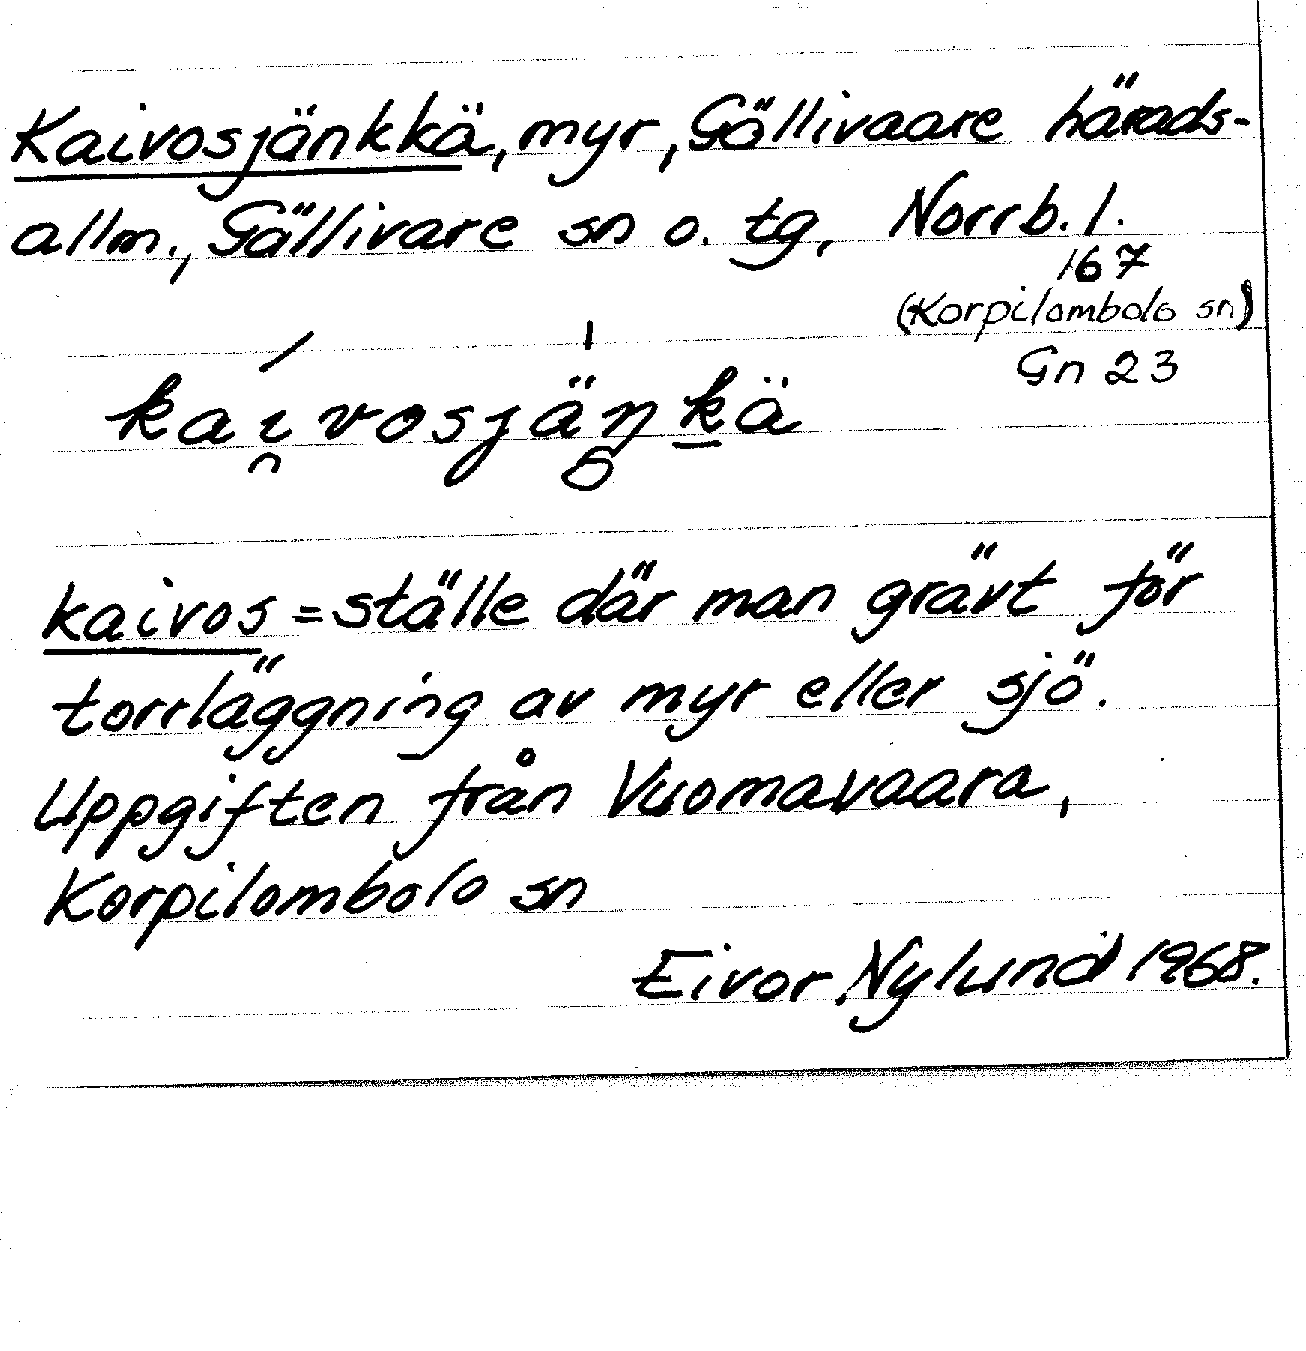 Kaivosjänkkä, myr, Gällivaare härads-
allm., Gällivare sn o. tg, Norrb. l.
167
(Korpilombolo sn)
Gn 23
kai̯vosjäŋkä
kaivos = ställe där man grävt för
torrläggning av myr eller sjö.
Uppgiften från Vuomavaara,
Korpilombolo sn
Eivor Nylund 1968.